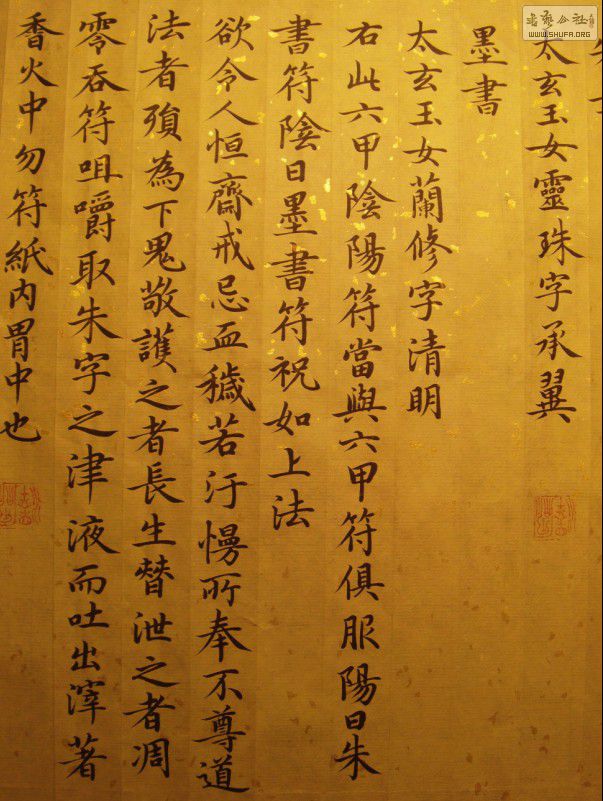 太玄玉女靈珠字承翼
墨書
太玄玉女蘭修字清明
右此六甲陰陽符當與六甲符俱服陽日朱
書符陰日墨書符祝如上法
欲令人恒齋戒忌血穢若汙慢所奉不尊道
法者殞為下鬼敬護之者長生替泄之者凋
零吞符咀嚼取朱字之津液而吐出滓著
香火中勿符紙內胃中也
書藝公社
WWW.SHUFA.ORG